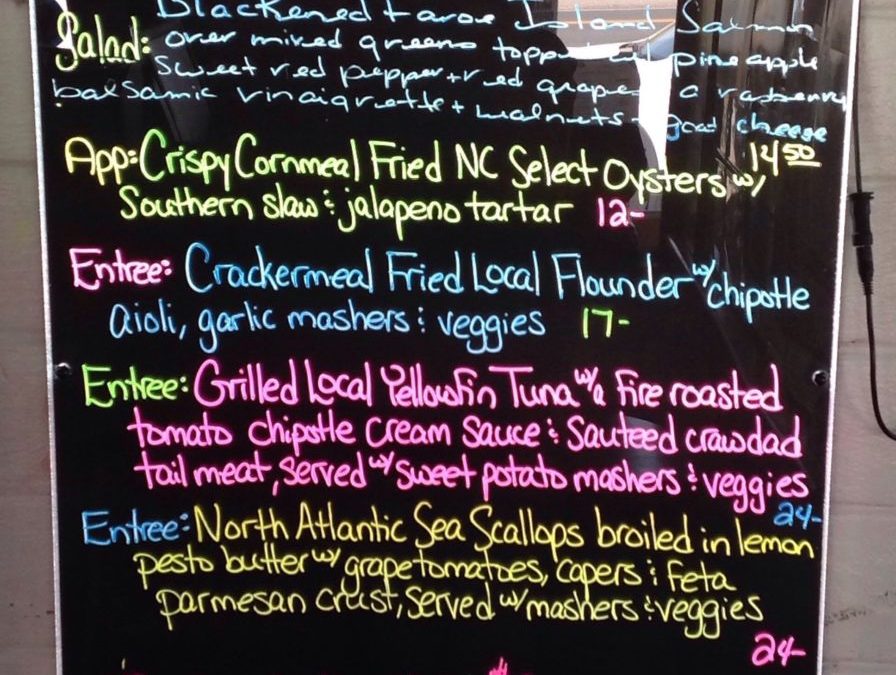 Blackened Faroe Island Salmon
Salad: over mixed greens topped pineapple
sweet red pepper + red grapes a raspberry
balsamic vinaigrette + walnuts + goat cheese
14 50
App: Crispy Cornmeal Fried NC Select Oysters w/
Southern slaw & jalapeno tartar 12-
Entree: Crackermeal Fried Local Flounder w/ chipotle
aioli, garlic mashers & veggies 17-
Entree: Grilled Local Yellowfin Tuna w/ a Fire roasted
tomato chipotle cream sauce & Sauteed crawdad
tail meat, served w/ sweet potato mashers & veggies
24-
Entree: North Atlantic Sea Scallops broiled in lemon
pesto butter w/ grape tomatoes, capers & Feta
parmesan crust, served w/ mashers & veggies
24-